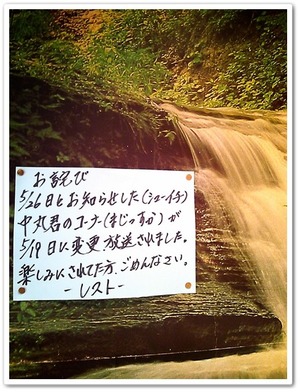 お詫び
5/26日とお知らせした(シューイチ)
中丸君のコーナー(まじっすか)が
5/19日に変更放送されました。
楽しみにされてた方、ごめんなさい。
-レスト-